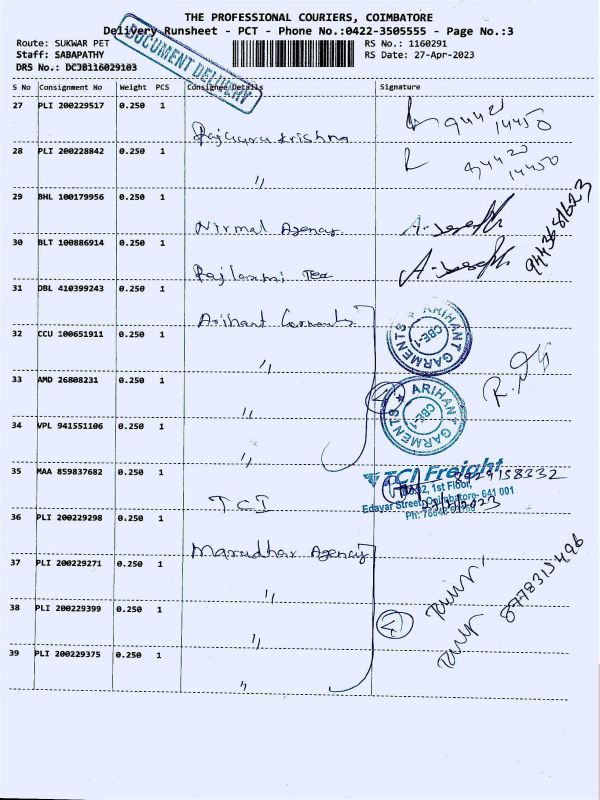 THE PROFESSIONAL COURIERS, COIMBATORE
Delivery Runsheet - PCT - Phone No.:0422-3505555 - Page No.:3
Route: SUKWAR PET
RS No.: 1160291
Staff: SABAPATHY
RS Date: 27-Apr-2023
DRS No.: DCJB116029103
DOCUMENT DELIVERY
S No Consignment No Weight PCS Consignee Details Signature
27 PLI 200229517 0.250 1
Rajaguru Krishna
94420
14450
28 PLI 200228842 0.250 1
"
94420
14450
29 BHL 100179956 0.250 1
Nirmal Agency
A. Joseph
9443681623
30 BLT 100886914 0.250 1
Rajlaxmi Tex
A. Joseph
31 DBL 410399243 0.250 1
Arihant Garments
ARIHANT GARMENTS
CBE-1
32 CCU 100651911 0.250 1
"
33 AMD 26808231 0.250 1
"
4
ARIHANT GARMENTS
CBE-1
34 VPL 941551106 0.250 1
"
35 MAA 859837682 0.250 1
T.C.I
TCI Freight
1st Floor,
Edayar Street, Coimbatore- 641 001
Ph:
36 PLI 200229298 0.250 1
Marudhar Agency
37 PLI 200229271 0.250 1
"
38 PLI 200229399 0.250 1
"
4
8778315496
39 PLI 200229375 0.250 1
"